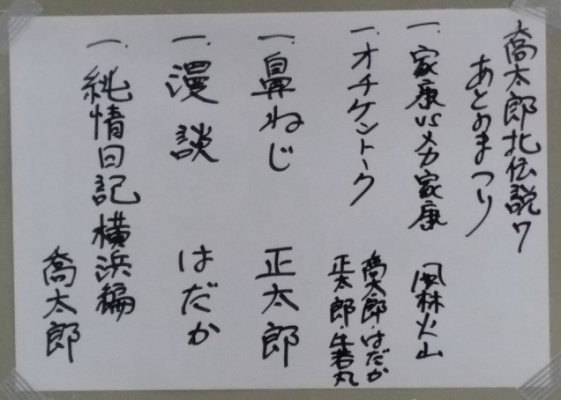 喬太郎北伝説7
あとのまつり
一、家康vsメカ家康 風林火山
一、オチケントーク 喬太郎・はだか
正太郎・牛若丸
一、鼻ねじ 正太郎
一、漫談 はだか
一、純情日記横浜編
喬太郎